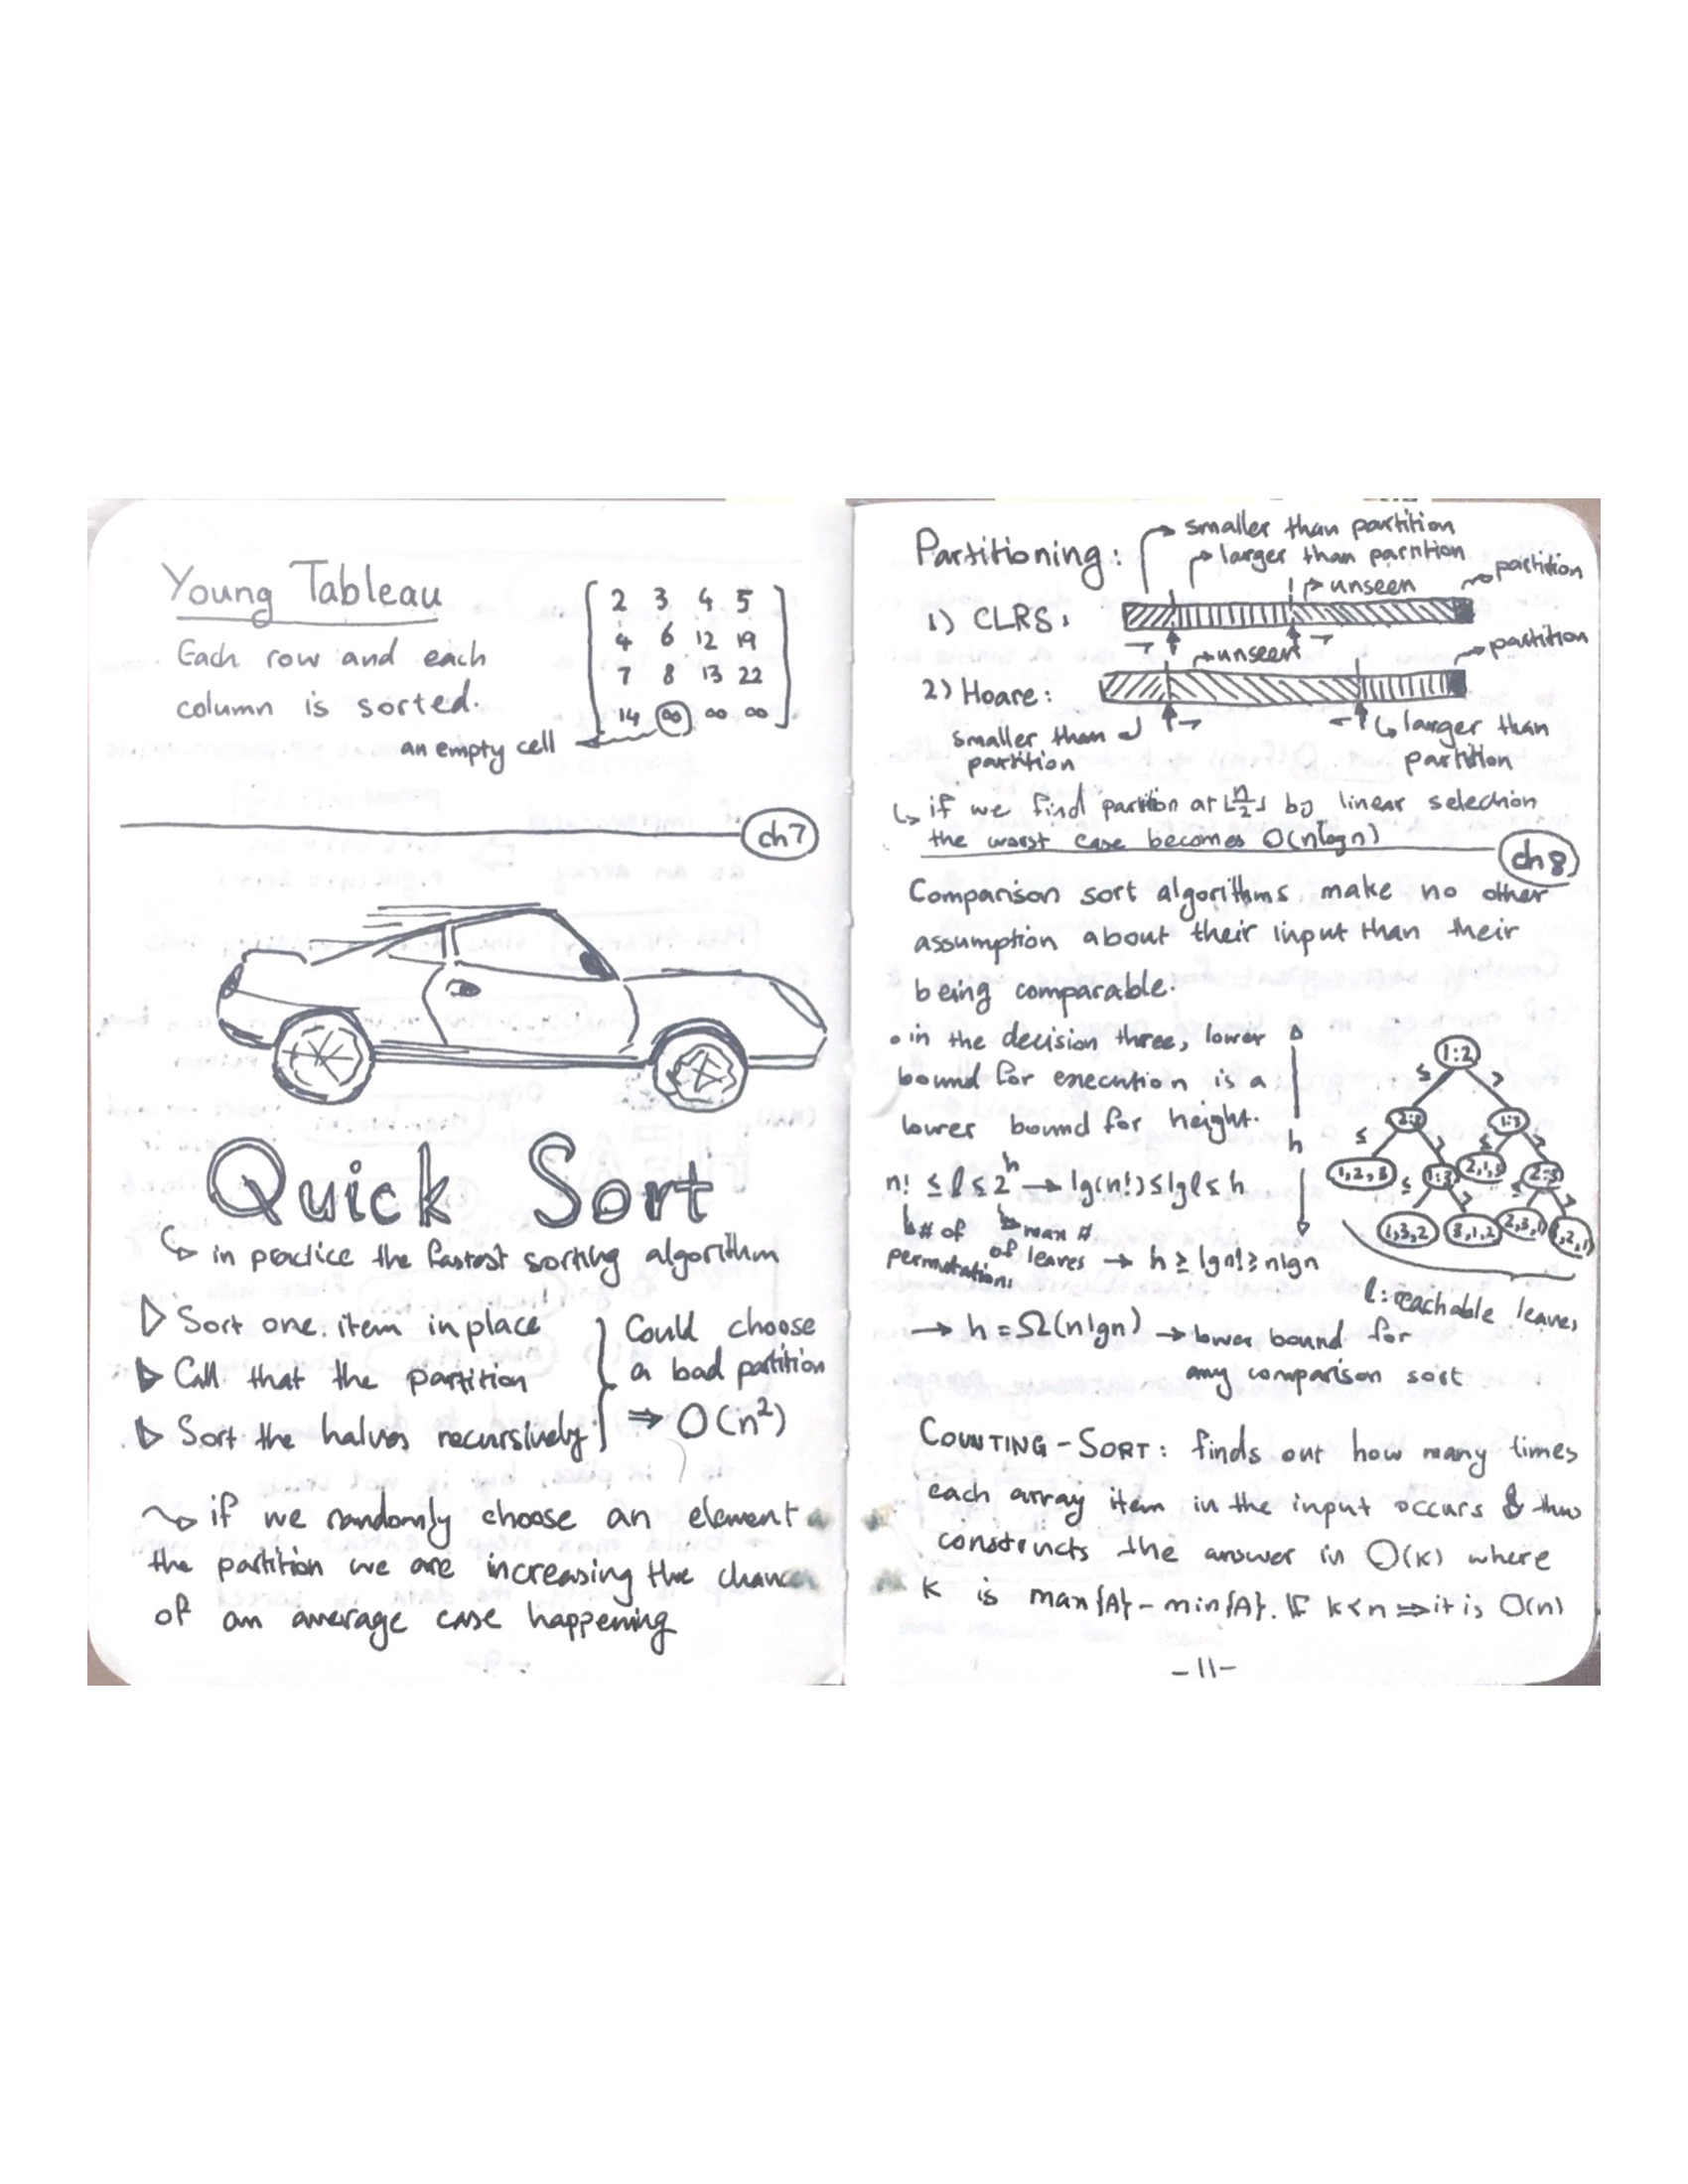 Young Tableau
Each row and each
column is sorted.
2 3 4 5
4 6 12 19
7 8 13 22
14 ∞ ∞ ∞
an empty cell
ch7
Quick Sort
in practice the fastest sorting algorithm
Sort one item in place
Call that the partition
Sort the halves recursively
Could choose
a bad partition
⇒ O(n²)
if we randomly choose an element
the partition we are increasing the chance
of an average case happening
Partitioning:
smaller than partition
larger than parntion
unseen
partition
1) CLRS:
unseen
partition
2) Hoare:
smaller than
partition
larger than
partition
if we find partition at ⌊n/2⌋ by linear selection
the worst case becomes O(nlogn)
ch8
Comparison sort algorithms make no other
assumption about their input than their
being comparable.
• in the decision three, lower
bound for execution is a
lower bound for height.
h
1:2
≤ >
2:3 1:3
≤ > ≤ >
1,2,3 1:3 2,1,3 2:3
≤ > ≤ >
1,3,2 3,1,2 2,3,1 3,2,1
l: reachable leaves
n! ≤ l ≤ 2^h → lg(n!) ≤ lg l ≤ h
# of
permutations
max #
of leaves → h ≥ lgn! ≥ nlgn
→ h = Ω(nlgn) → lower bound for
any comparison sort
COUNTING-SORT: finds out how many times
each array item in the input occurs & thus
constructs the answer in O(k) where
k is max{A} - min{A}. IF k<n ⇒ it is O(n)
-11-